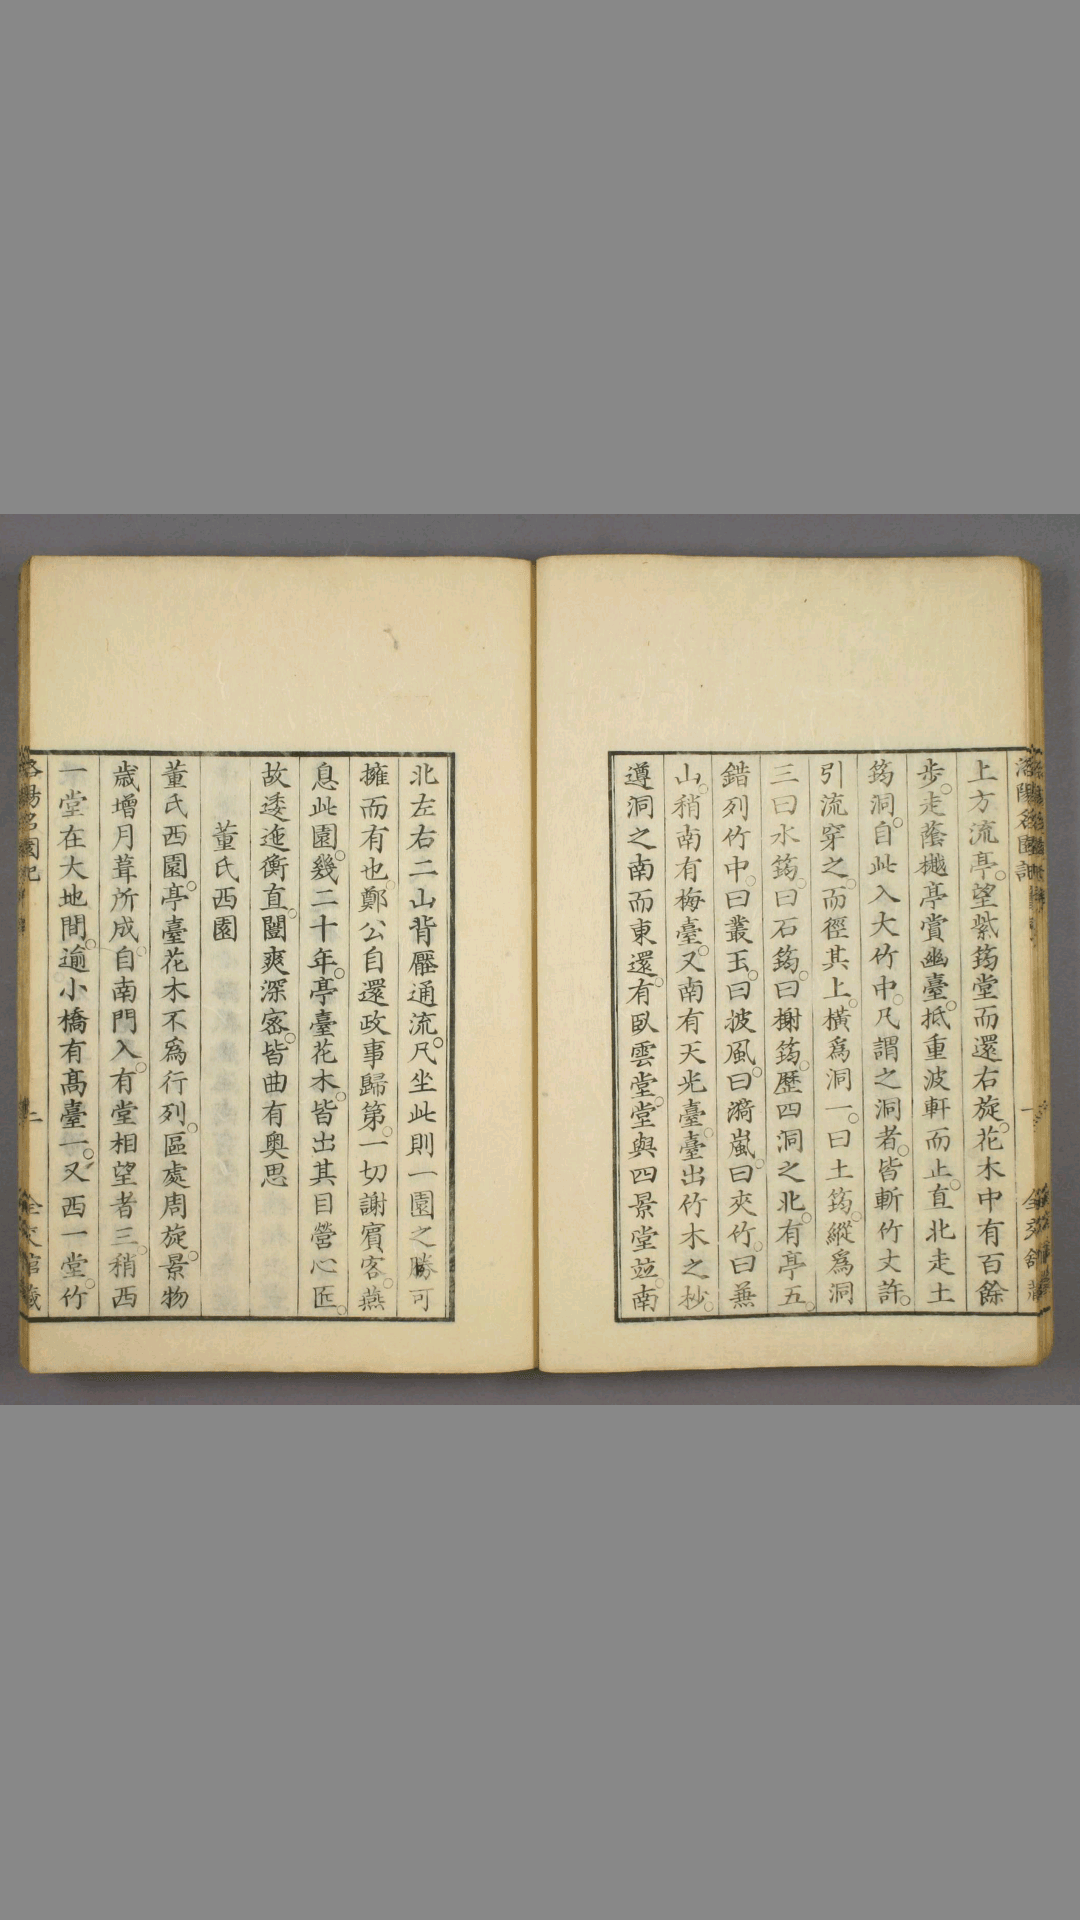 上方流亭。望紫筠堂而還右旋。花木中有百餘
步。走蔭樾亭賞幽臺。抵重波軒而止。直北走土
筠洞。自此入大竹中。凡謂之洞者。皆斬竹丈許。
引流穿之。而徑其上。橫爲洞一。曰土筠。縱爲洞
三曰水筠。曰石筠。曰榭筠。歷四洞之北。有亭五。
錯列竹中。曰叢玉。曰披風。曰漪嵐。曰夾竹。曰兼
山。稍南有梅臺。又南有天光臺。臺出竹木之杪。
遵洞之南而東還。有臥雲堂。堂與四景堂竝。南
北左右二山背壓通流。凡坐此則一園之勝可
擁而有也。鄭公自還政事歸第。一切謝賓客。燕
息此園。幾二十年。亭臺花木。皆出其目營心匠。
故逶迤衡直。闓爽深密。皆曲有奧思
董氏西園
董氏西園。亭臺花木不爲行列。區處周旋。景物
歲增月葺所成。自南門入。有堂相望者三。稍西
一堂在大地間。逾小橋有高臺一。又西一堂。竹